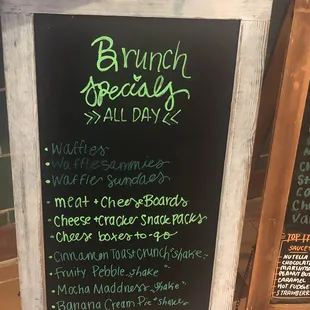 Brunch
Specials
>> ALL DAY <<
• Waffles
• Waffle Sammies
• Waffle Sundaes
• meat + Cheese Boards
• Cheese + Cracker Snack Packs
• Cheese boxes to-go
• Cinnamon Toast Crunch "shake"
• Fruity Pebble "shake"
• Mocha Maddness "shake"
• Banana Cream Pie "shake"
TOP IT
SAUCE
NUTELLA
CHOCOLATE
MARSHM
PEANUT BU
CARAMEL
HOT FUDGE
STRAWBERR